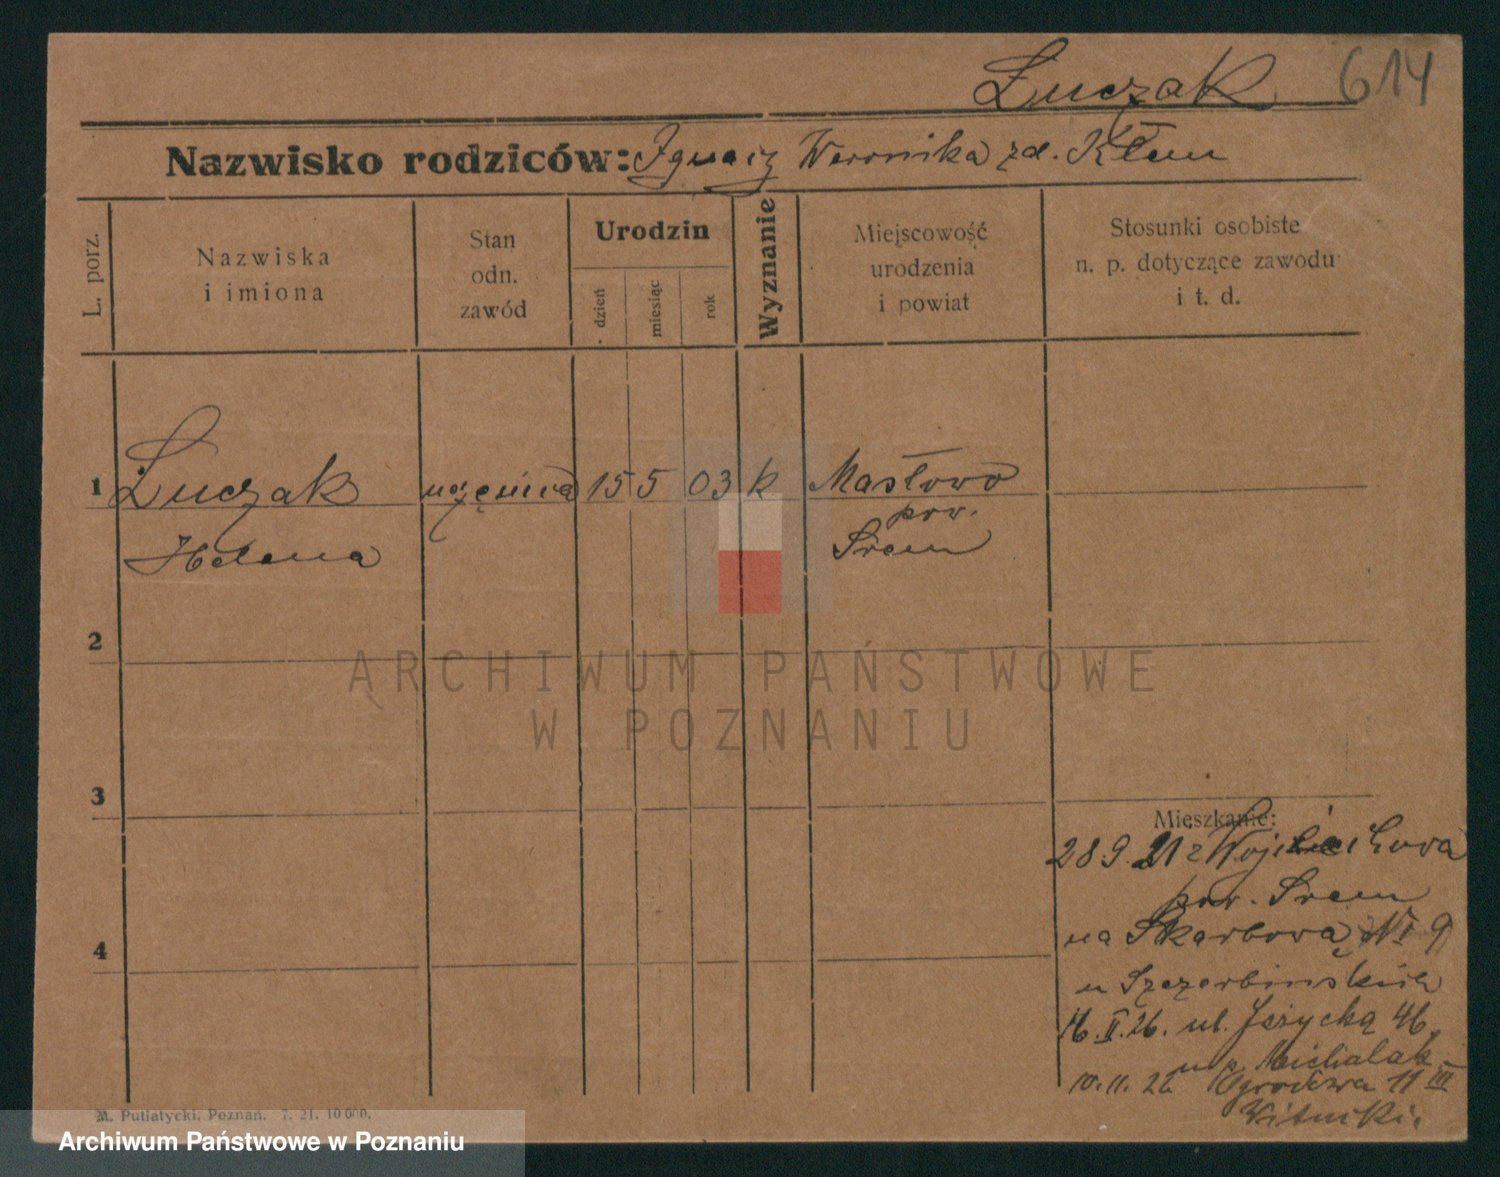 Łuczak 614
Nazwisko rodziców: Ignacy Weronika zd. Kłem
L. porz.
Nazwiska
i imiona
Stan
odn.
zawód
Urodzin
dzień
miesiąc
rok
Wyznanie
Miejscowość
urodzenia
i powiat
Stosunki osobiste
n. p. dotyczące zawodu
i t. d.
1 Łuczak 15 5 03 k Masłowo
pow.
Helena Śrem
2
ARCHIWUM PAŃSTWOWE
W POZNANIU
3
Mieszkanie:
28 9. 21 z
pow. Śrem
na Skarbową 9
u
16. II. 26. ul. Jeżycką 46.
u p. Michalak
10. 11. 26 Ogrodowa 11 III
4
M. Putiatycki, Poznań. 7. 21. 10 000.
Archiwum Państwowe w Poznaniu